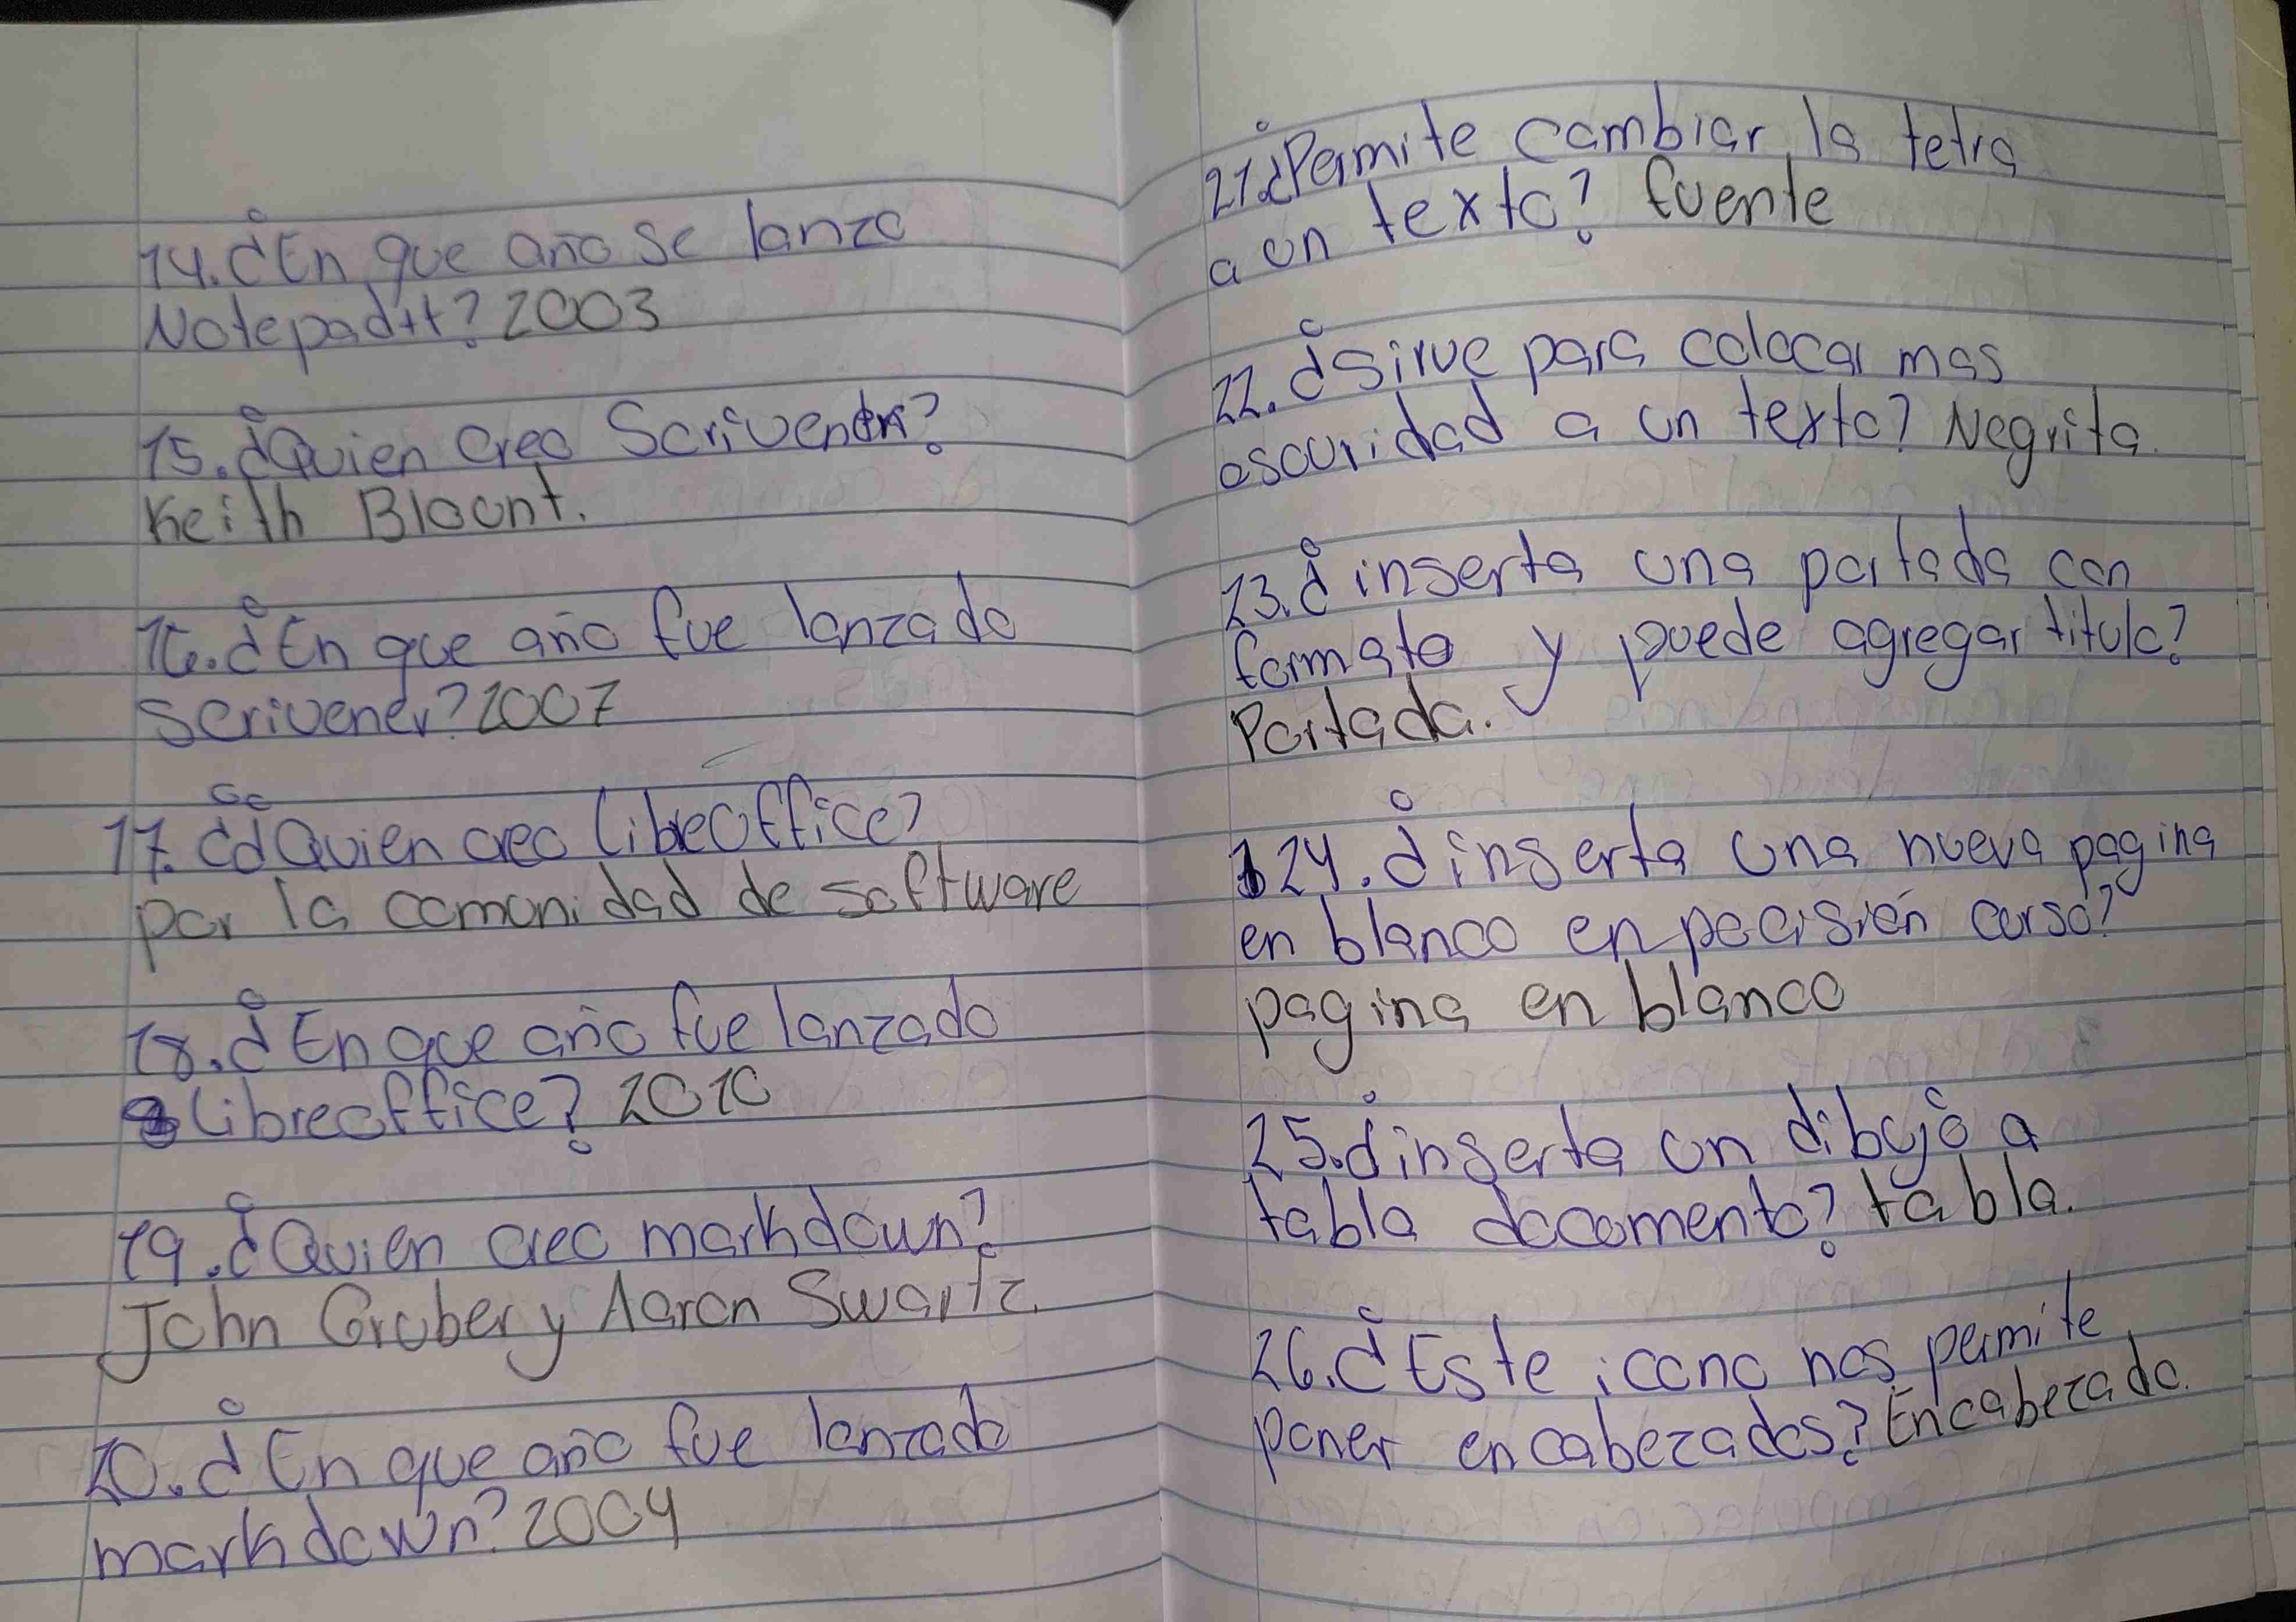 14. ¿En que año se lanzo
Notepad++? 2003
15. ¿Quien creo Scrivener?
Keith Blount.
16. ¿En que año fue lanzado
scrivener? 2007
17. ¿¿Quien creo libreoffice?
por la comunidad de software
18. ¿En que año fue lanzado
libreoffice? 2010
19. ¿Quien creo markdown?
John Gruber y Aaron Swartz.
20. ¿En que año fue lanzado
markdown? 2004
21. ¿Permite cambiar la tetra
a un texto? fuente
22. ¿sirve para colocar mas
oscuridad a un texto? Negrita.
23. ¿inserta una portada con
formato y puede agregar titulo?
Portada.
24. ¿inserta una nueva pagina
en blanco en pocisión curso?
pagina en blanco
25. ¿inserta un dibujo a
tabla documento? tabla.
26. ¿Este icono nos permite
poner encabezados? Encabezado.